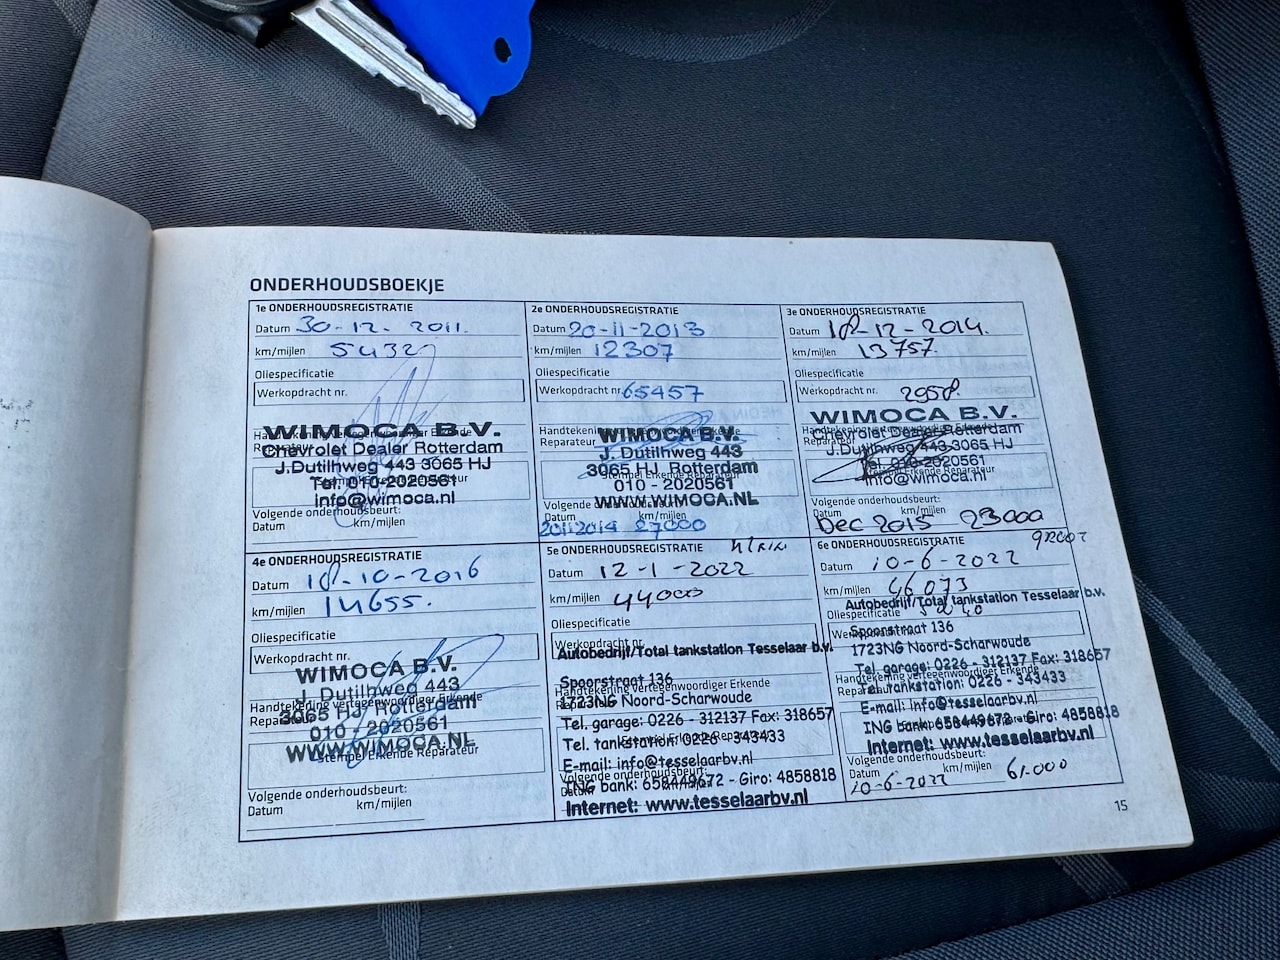 ONDERHOUDSBOEKJE
1e ONDERHOUDSREGISTRATIE
Datum 30-12-2011.
km/mijlen 5432
Oliespecificatie
Werkopdracht nr.
WIMOCA B.V.
Chevrolet Dealer Rotterdam
J.Dutilhweg 443 3065 HJ
Tel. 010-2020561
info@wimoca.nl
Volgende onderhoudsbeurt:
Datum km/mijlen
2e ONDERHOUDSREGISTRATIE
Datum 20-11-2013
km/mijlen 12307
Oliespecificatie
Werkopdracht nr. 65457
Handtekening vertegenwoordiger Erkende
Reparateur
WIMOCA B.V.
J. Dutilhweg 443
3065 HJ Rotterdam
Stempel Erkende Reparateur
010 - 2020561
WWW.WIMOCA.NL
Volgende onderhoudsbeurt:
Datum km/mijlen
20112014 27000
3e ONDERHOUDSREGISTRATIE
Datum 18-12-2014.
km/mijlen 13757.
Oliespecificatie
Werkopdracht nr. 2958.
WIMOCA B.V.
Handtekening vertegenwoordiger Erkende
Chevrolet Dealer Rotterdam
Reparateur
J.Dutilhweg 443 3065 HJ
Tel. 010-2020561
info@wimoca.nl
Volgende onderhoudsbeurt:
Datum km/mijlen
Dec 2015 23000
4e ONDERHOUDSREGISTRATIE
Datum 18-10-2016
km/mijlen 14655.
Oliespecificatie
Werkopdracht nr.
WIMOCA B.V.
J. Dutilhweg 443
Handtekening vertegenwoordiger Erkende
3065 HJ Rotterdam
Reparateur
010 - 2020561
WWW.WIMOCA.NL
Stempel Erkende Reparateur
Volgende onderhoudsbeurt:
Datum km/mijlen
5e ONDERHOUDSREGISTRATIE
Datum 12-1-2022
km/mijlen 44000
Oliespecificatie
Werkopdracht nr.
Autobedrijf/Total tankstation Tesselaar b.v.
Spoorstraat 136
Handtekening vertegenwoordiger Erkende
Reparateur
1723NG Noord-Scharwoude
Tel. garage: 0226 - 312137 Fax: 318657
Stempel Erkende Reparateur
Tel. tankstation: 0226 - 343433
E-mail: info@tesselaarbv.nl
Volgende onderhoudsbeurt:
Datum km/mijlen
ING bank: 658449672 - Giro: 4858818
Internet: www.tesselaarbv.nl
6e ONDERHOUDSREGISTRATIE
Datum 10-6-2022
km/mijlen 46073
Autobedrijf/Total tankstation Tesselaar b.v.
Oliespecificatie
Spoorstraat 136
Werkopdracht nr.
1723NG Noord-Scharwoude
Tel. garage: 0226 - 312137 Fax: 318657
Handtekening vertegenwoordiger Erkende
Reparateur
Tel. tankstation: 0226 - 343433
E-mail: info@tesselaarbv.nl
ING bank: 658449672 - Giro: 4858818
Internet: www.tesselaarbv.nl
Volgende onderhoudsbeurt:
Datum km/mijlen 61.000
10-6-2022
15